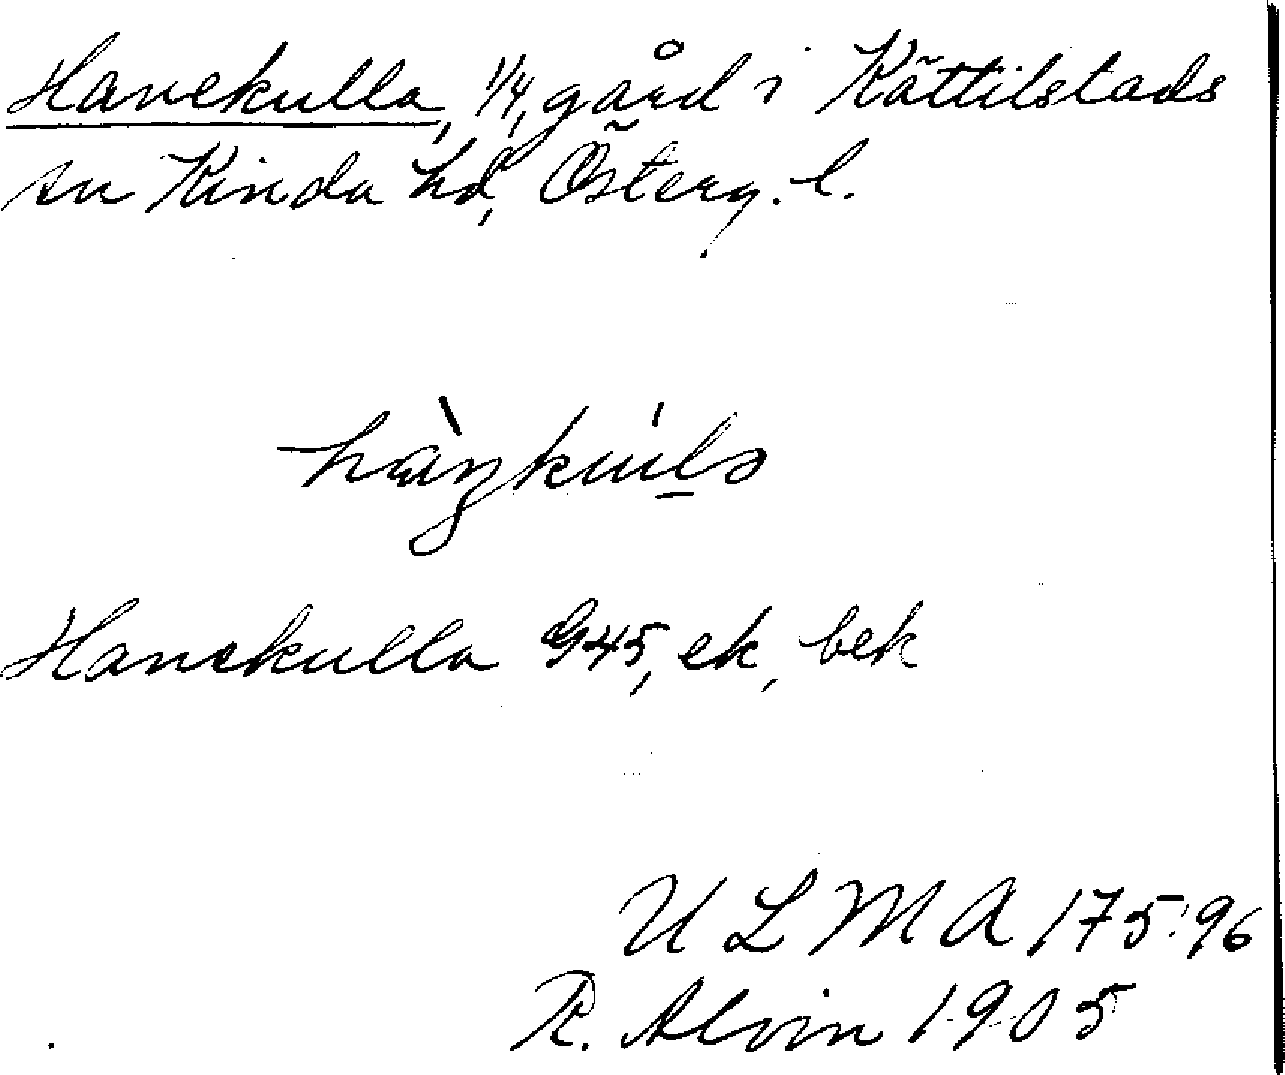 Hanekulla, 1/4, gård i Kättilstads
sn Kinda hd, Österg. l.
Hanekulla G45, ek, bek
U L M A 175:96
R. Alvin 1905